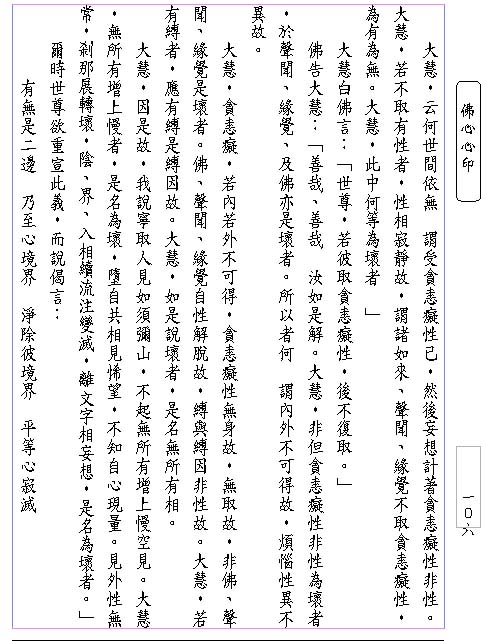 佛心心印
大慧，云何世間依無？謂受貪恚癡性已，然後妄想計著貪恚癡性非性。
大慧，若不取有性者，性相寂靜故，謂諸如來、聲聞、緣覺不取貪恚癡性，
為有為無。大慧，此中何等為壞者？」
大慧白佛言：「世尊，若彼取貪恚癡性，後不復取。」
佛告大慧：「善哉、善哉！汝如是解。大慧，非但貪恚癡性非性為壞者
，於聲聞、緣覺、及佛亦是壞者。所以者何？謂內外不可得故，煩惱性異不
異故。
大慧，貪恚癡，若內若外不可得，貪恚癡性無身故，無取故，非佛、聲
聞、緣覺是壞者。佛、聲聞、緣覺自性解脫故，縛與縛因非性故。大慧，若
有縛者，應有縛是縛因故。大慧，如是說壞者，是名無所有相。
大慧，因是故，我說寧取人見如須彌山，不起無所有增上慢空見。大慧
，無所有增上慢者，是名為壞，墮自共相見悕望，不知自心現量。見外性無
常，剎那展轉壞，陰、界、入相續流注變滅，離文字相妄想，是名為壞者。」
爾時世尊欲重宣此義，而說偈言：
有無是二邊　乃至心境界　淨除彼境界　平等心寂滅
一０六